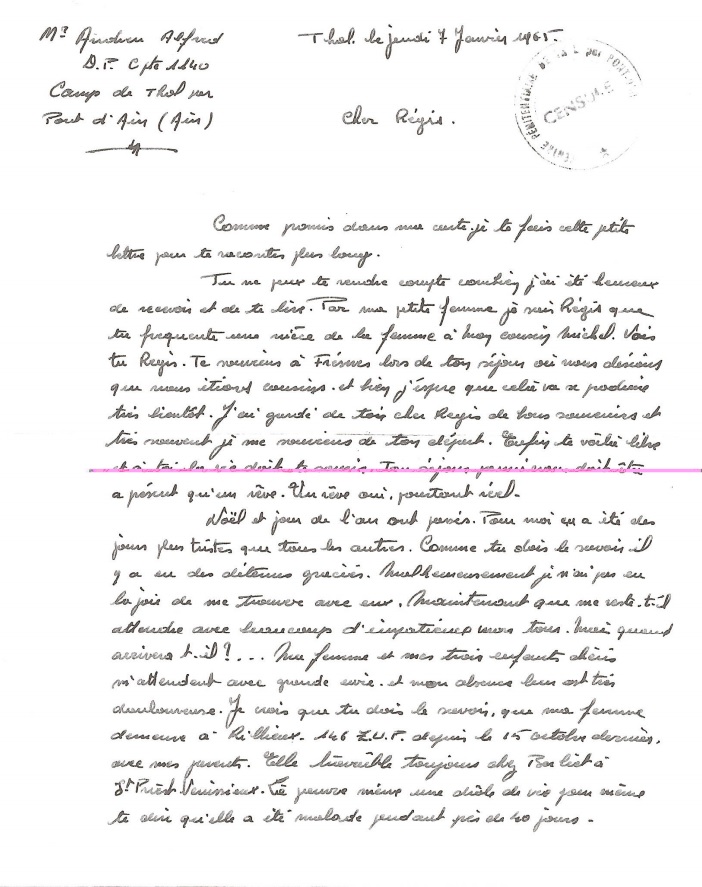 Mr Andreu Alfred
D.P. Cpte 1140
Camp de Thol par
Pont d'Ain (Ain)
Thol. le jeudi 7 Janvier 1965.
CENTRE PÉNITENTIAIRE DE par PONT
CENSURE
Cher Régis.
Comme promis dans ma carte je te fais cette petite
lettre pour te racontes plus long.
Tu ne peux te rendre compte combien j'ai été heureux
de recevoir et de te lire. Par ma petite femme je sais Régis que
tu frequente une nièce de la femme à mon cousin Michel. Vois
tu Regis. Te souviens à Fresnes lors de ton séjour où nous desions
que nous étions cousins. et bien j'espre que celà va se produire
très bientôt. J'ai gardé de tois cher Regis de bons souvenirs et
très souvent je me souviens de ton départ. Enfin te voilà libre
et à toi la vie doit te Ton séjour parmi nous doit être
a présent qu'un rêve. Un rêve oui, pourtant réel.
Noël et jour de l'an ont passés. Pour moi ça a été des
jours plus tristes que tous les autres. Comme tu dois le savoir il
y a eu des détenus graciés. Malheureusement je n'ai pas eu
la joie de me trouver avec eux. Maintenant que me reste-t-il
attendre avec beaucoup d'impatience mon tour. Mais quand
arrivera t-il?... Ma femme et mes trois enfants chéris
m'attendent avec grande envie. et mon absence leur est très
douloureuse. Je crois que tu dois le savoir, que ma femme
demeure à Rillieux. 146 Z.U.P. depuis le 15 octobre dernier,
avec mes parents. Elle travaille toujours chez Berliet à
St Priest Vénissieux. La pauvre mène une drôle de vie pour même
te dire qu'elle a été malade pendant près de 40 jours.